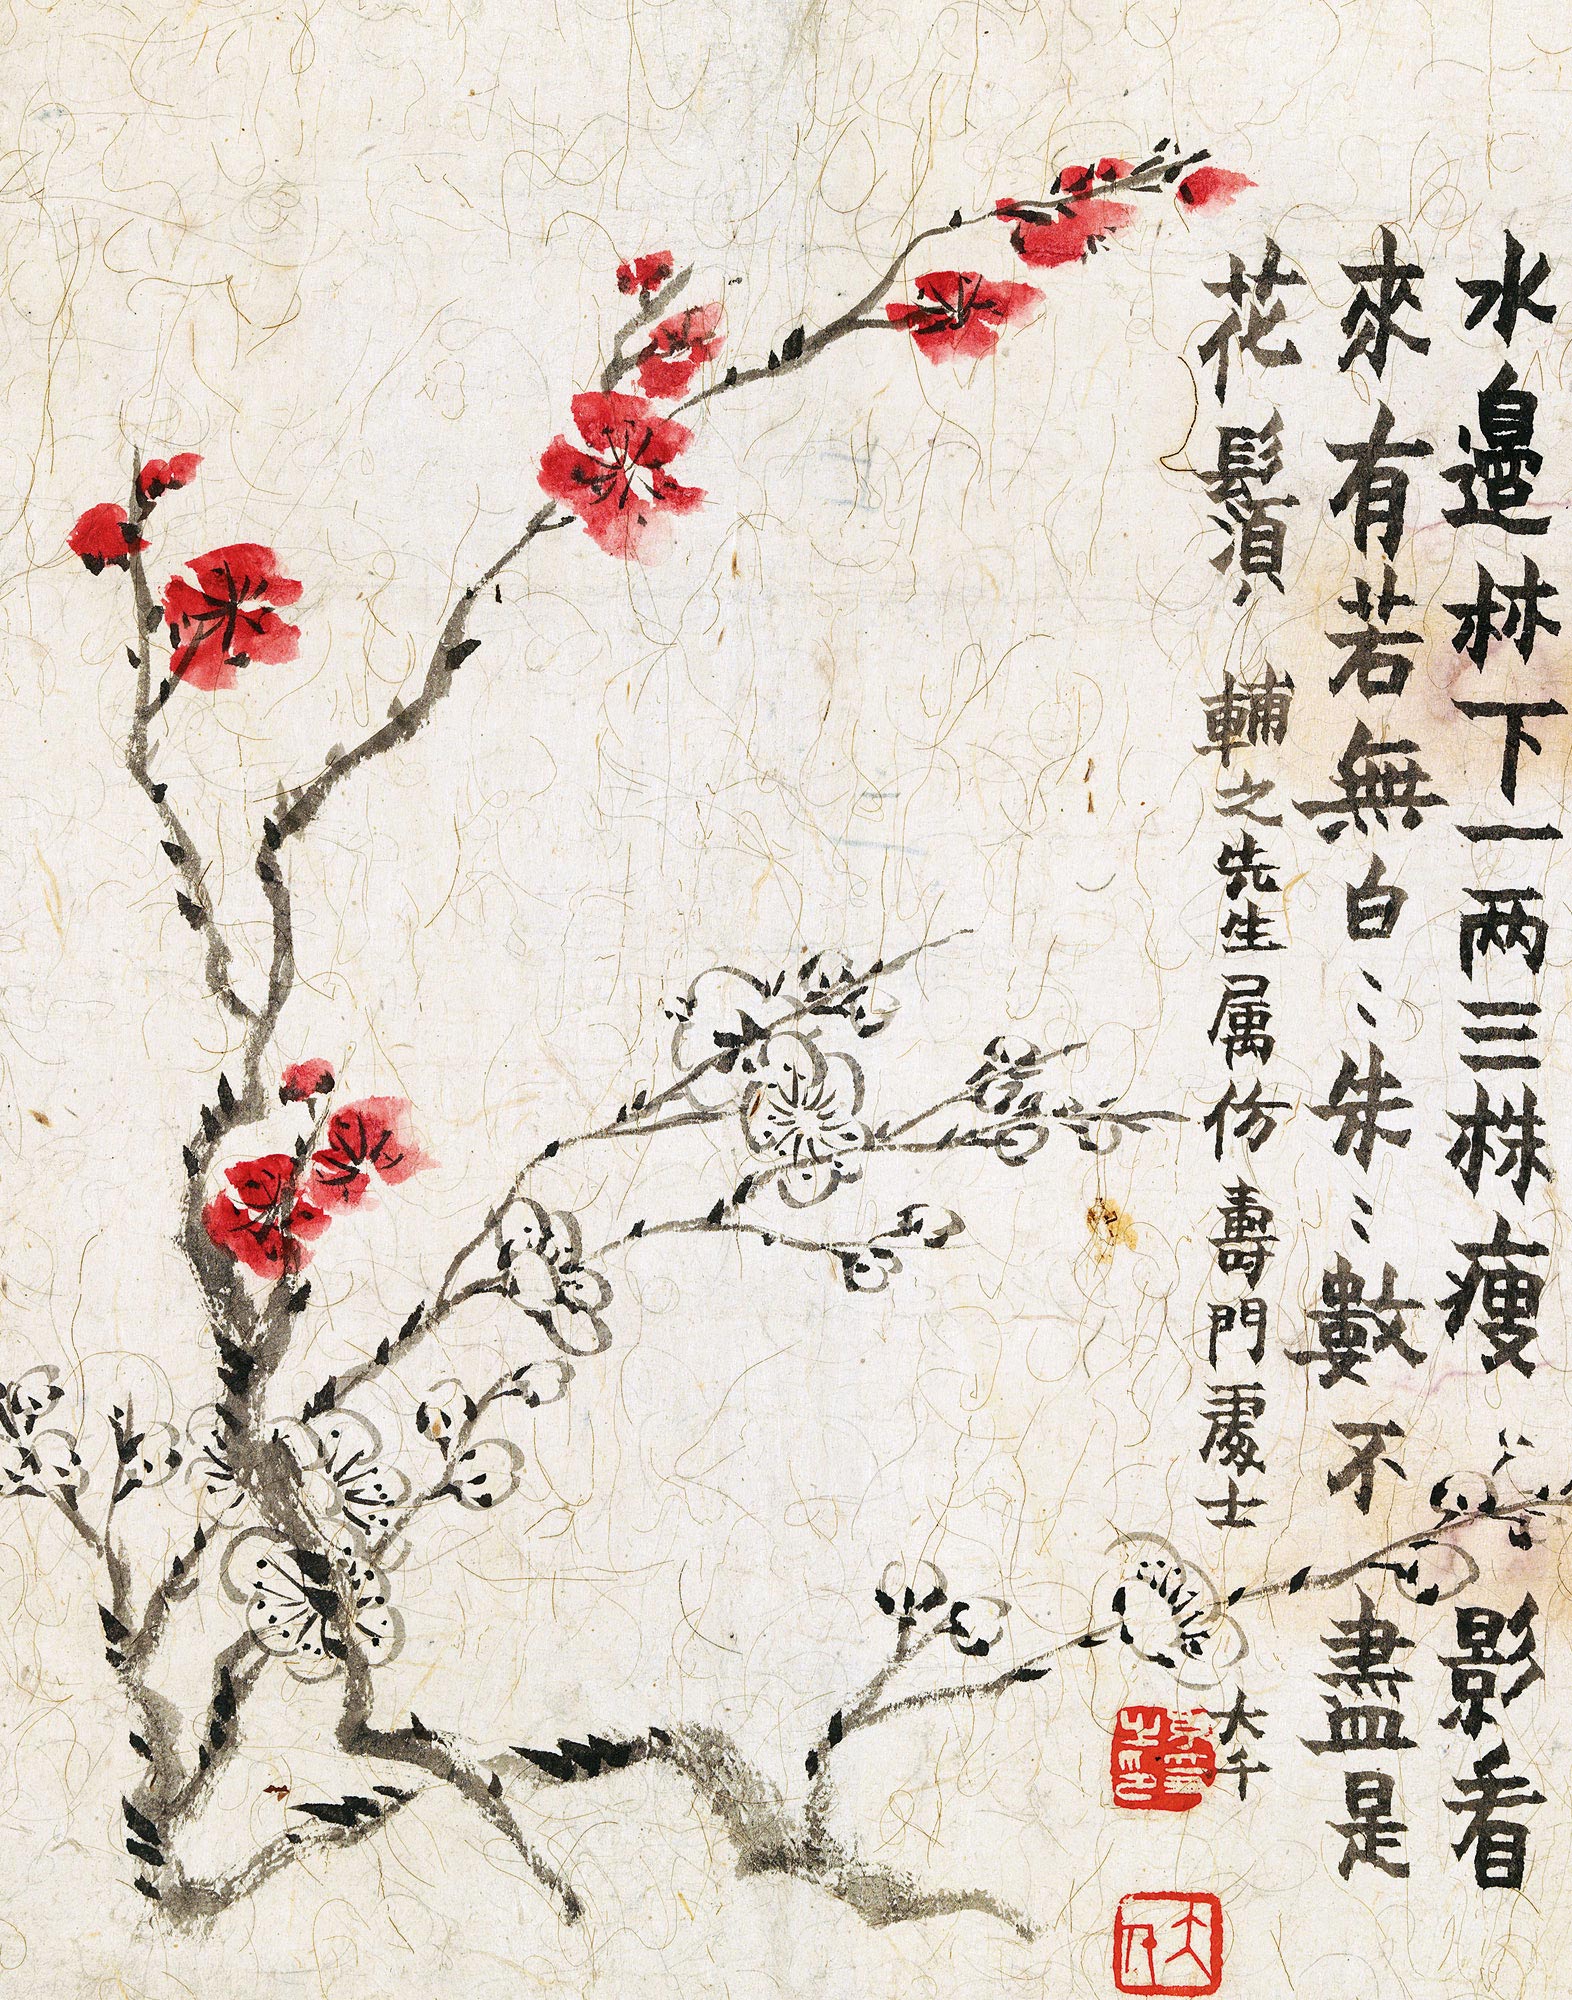 水邊林下一两三株瘦〻影看
來有若無白〻朱〻數不盡是
花鬚 輔之先生属仿壽門處士 大千
大千